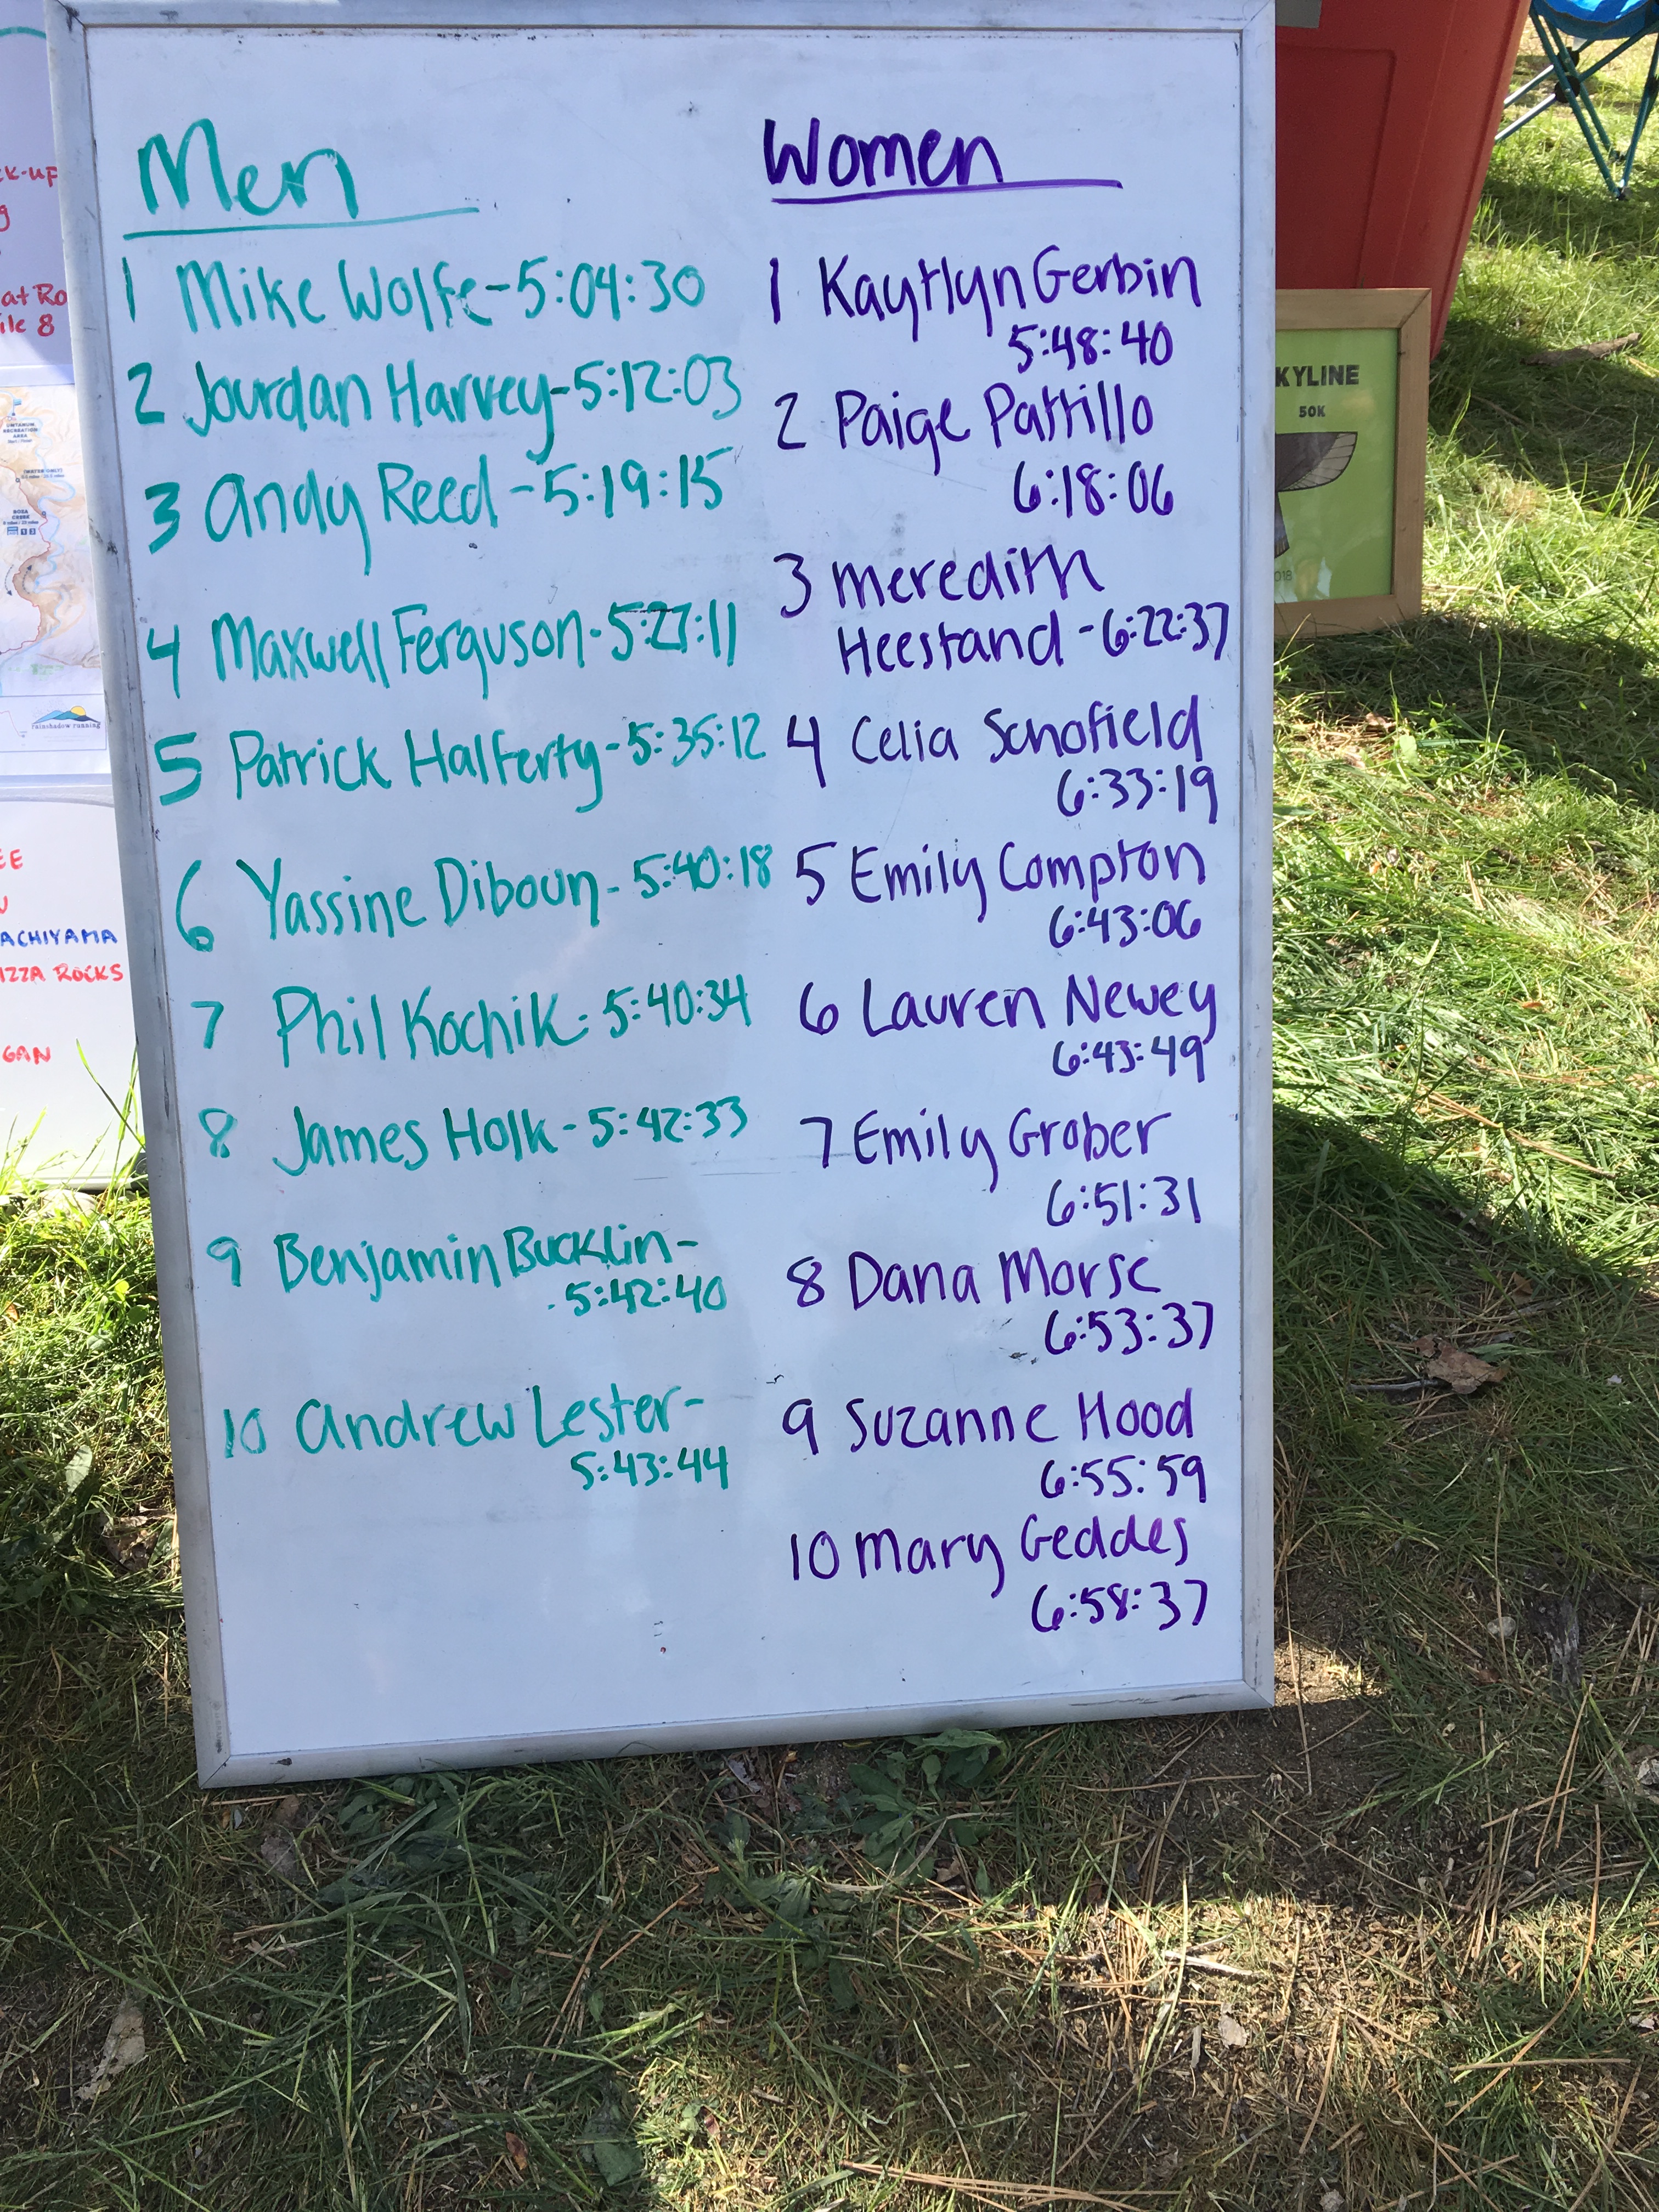 Men
1 Mike Wolfe-5:04:30
2 Jourdan Harvey-5:12:03
3 Andy Reed-5:19:15
4 Maxwell Ferguson-5:27:11
5 Patrick Halferty-5:35:12
6 Yassine Diboun-5:40:18
7 Phil Kochik-5:40:34
8 James Holk-5:42:33
9 Benjamin Bucklin-
5:42:40
10 Andrew Lester-
5:43:44
Women
1 Kaytlyn Gerbin
5:48:40
2 Paige Pattillo
6:18:06
3 Meredith
Heestand-6:22:37
4 Celia Schofield
6:33:19
5 Emily Compton
6:43:06
6 Lauren Newey
6:43:49
7 Emily Grober
6:51:31
8 Dana Morse
6:53:37
9 Suzanne Hood
6:55:59
10 Mary Geddes
6:58:37
KYLINE
50K
018
CK-UP
at Ro
ile 8
rainshadow running
EE
ACHIYAMA
IZZA ROCKS
GAN